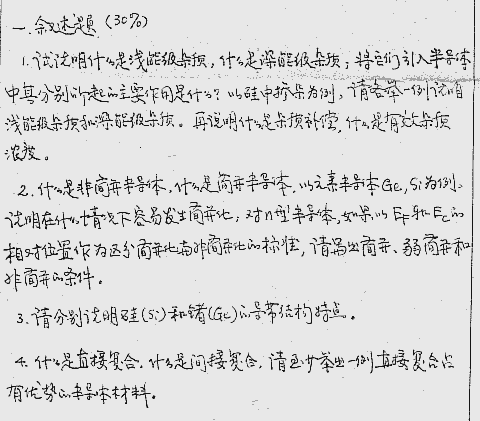 一. 叙述题 (30%)
1. 试说明什么是浅能级杂质, 什么是深能级杂质; 将它们引入半导体
中其分别所起的主要作用是什么? 以硅中掺杂为例, 请各举一例说明
浅能级杂质和深能级杂质。再说明什么是杂质补偿, 什么是有效杂质
浓度。
2. 什么是非简并半导体, 什么是简并半导体, 以元素半导体Ge, Si为例,
说明在什么情况下容易发生简并化, 对n型半导体, 如果以EF和Ec的
相对位置作为区分简并化与非简并化的标准, 请写出简并、弱简并和
非简并的条件。
3. 请分别说明硅(Si)和锗(Ge)的导带结构特点。
4. 什么是直接复合, 什么是间接复合, 请至少举出一例直接复合占
有优势的半导体材料。